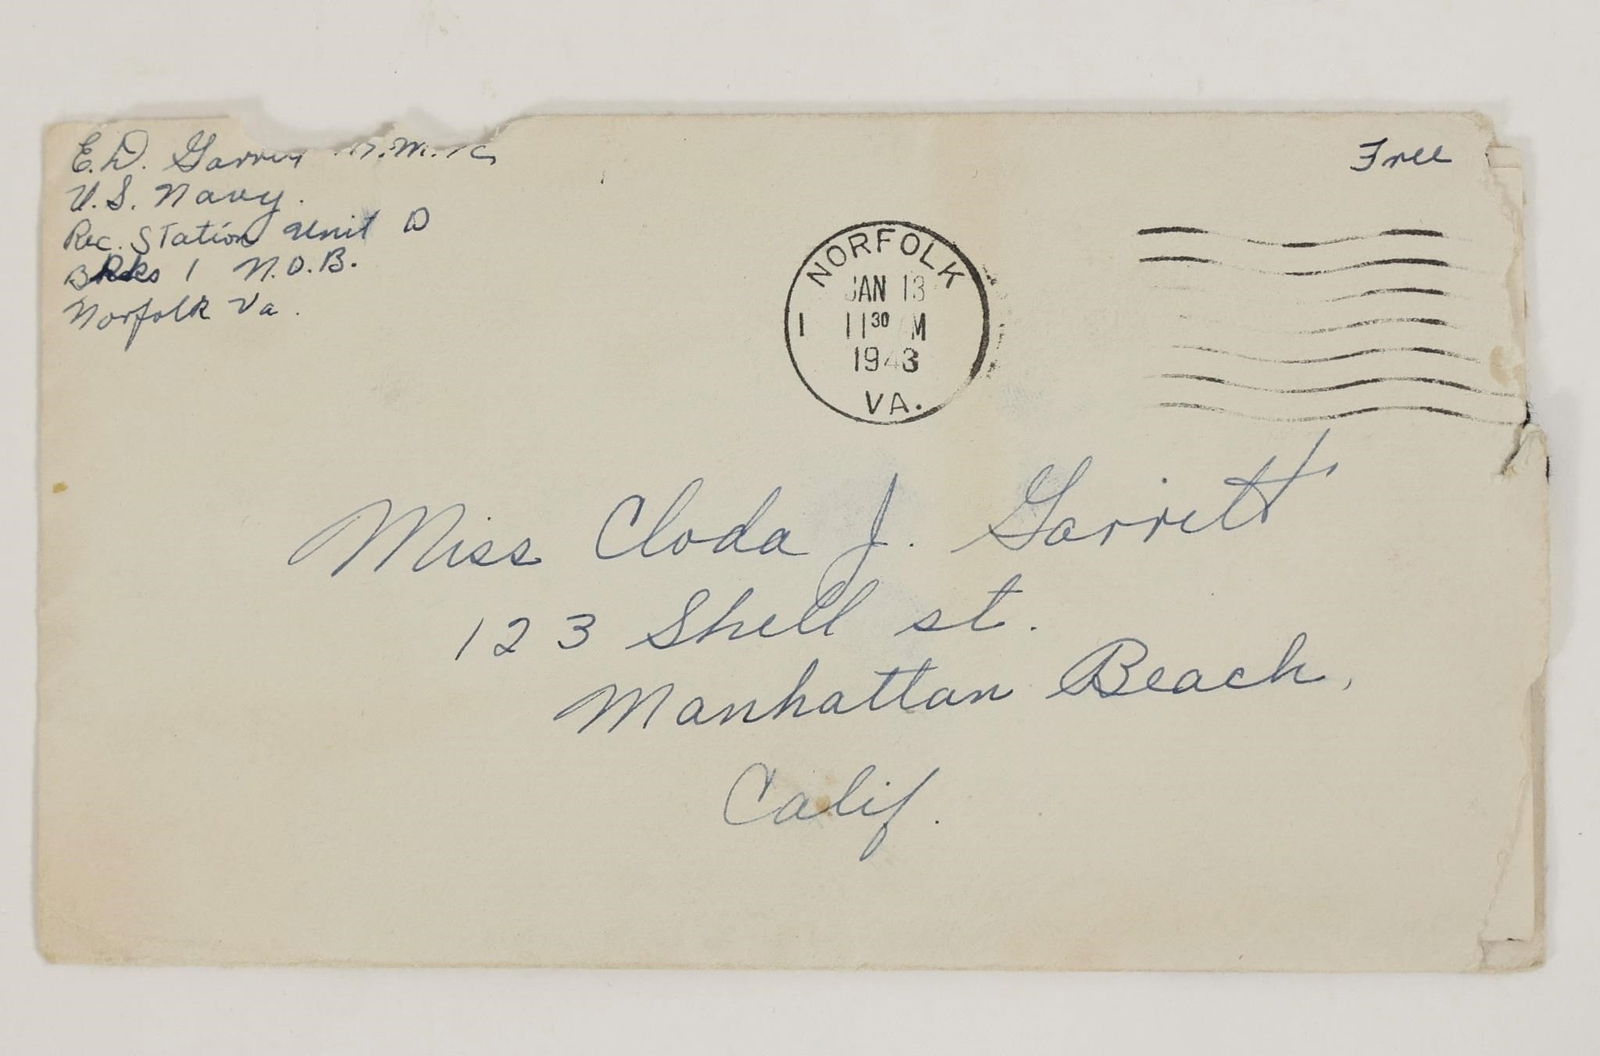 E.D.
U.S. Navy.
Rec. Station Unit D
BRks 1 N.O.B.
Norfolk Va.
Free
NORFOLK
JAN 13
1 11 30 M
1943
VA.
Miss Cloda J. Garrett
123 Shell st.
Manhattan Beach,
Calif.